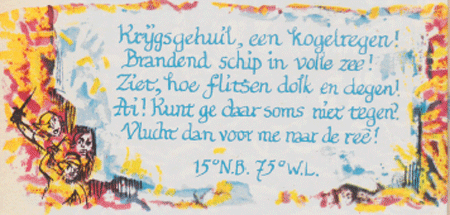 Krijgsgehuil, een kogelregen!
Brandend schip in volle zee!
Ziet, hoe flitsen dolk en degen!
Ai! Kunt ge daar soms niet tegen?
Vlucht dan voor me naar de reê!
15° N.B. 75° W.L.